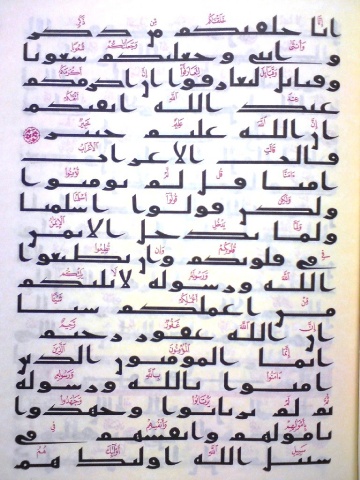 انا خلقنكم من ذكر
وانثى وجعلنكم شعوبا
وقبايل لتعارفوا ان اكرمكم
عند الله اتقيكم
ان الله عليم خبير
قالت الاعراب
امنا قل لم تومنوا
ولكن قولوا اسلمنا
ولما يدخل الايمن
في قلوبكم وان تطيعوا
الله ورسوله لا يلتكم
من اعملكم شيا
ان الله غفور رحيم
انما المومنون الذين
امنوا بالله ورسوله
ثم لم يرتابوا وجهدوا
بامولهم وانفسهم في
سبيل الله اوليك هم